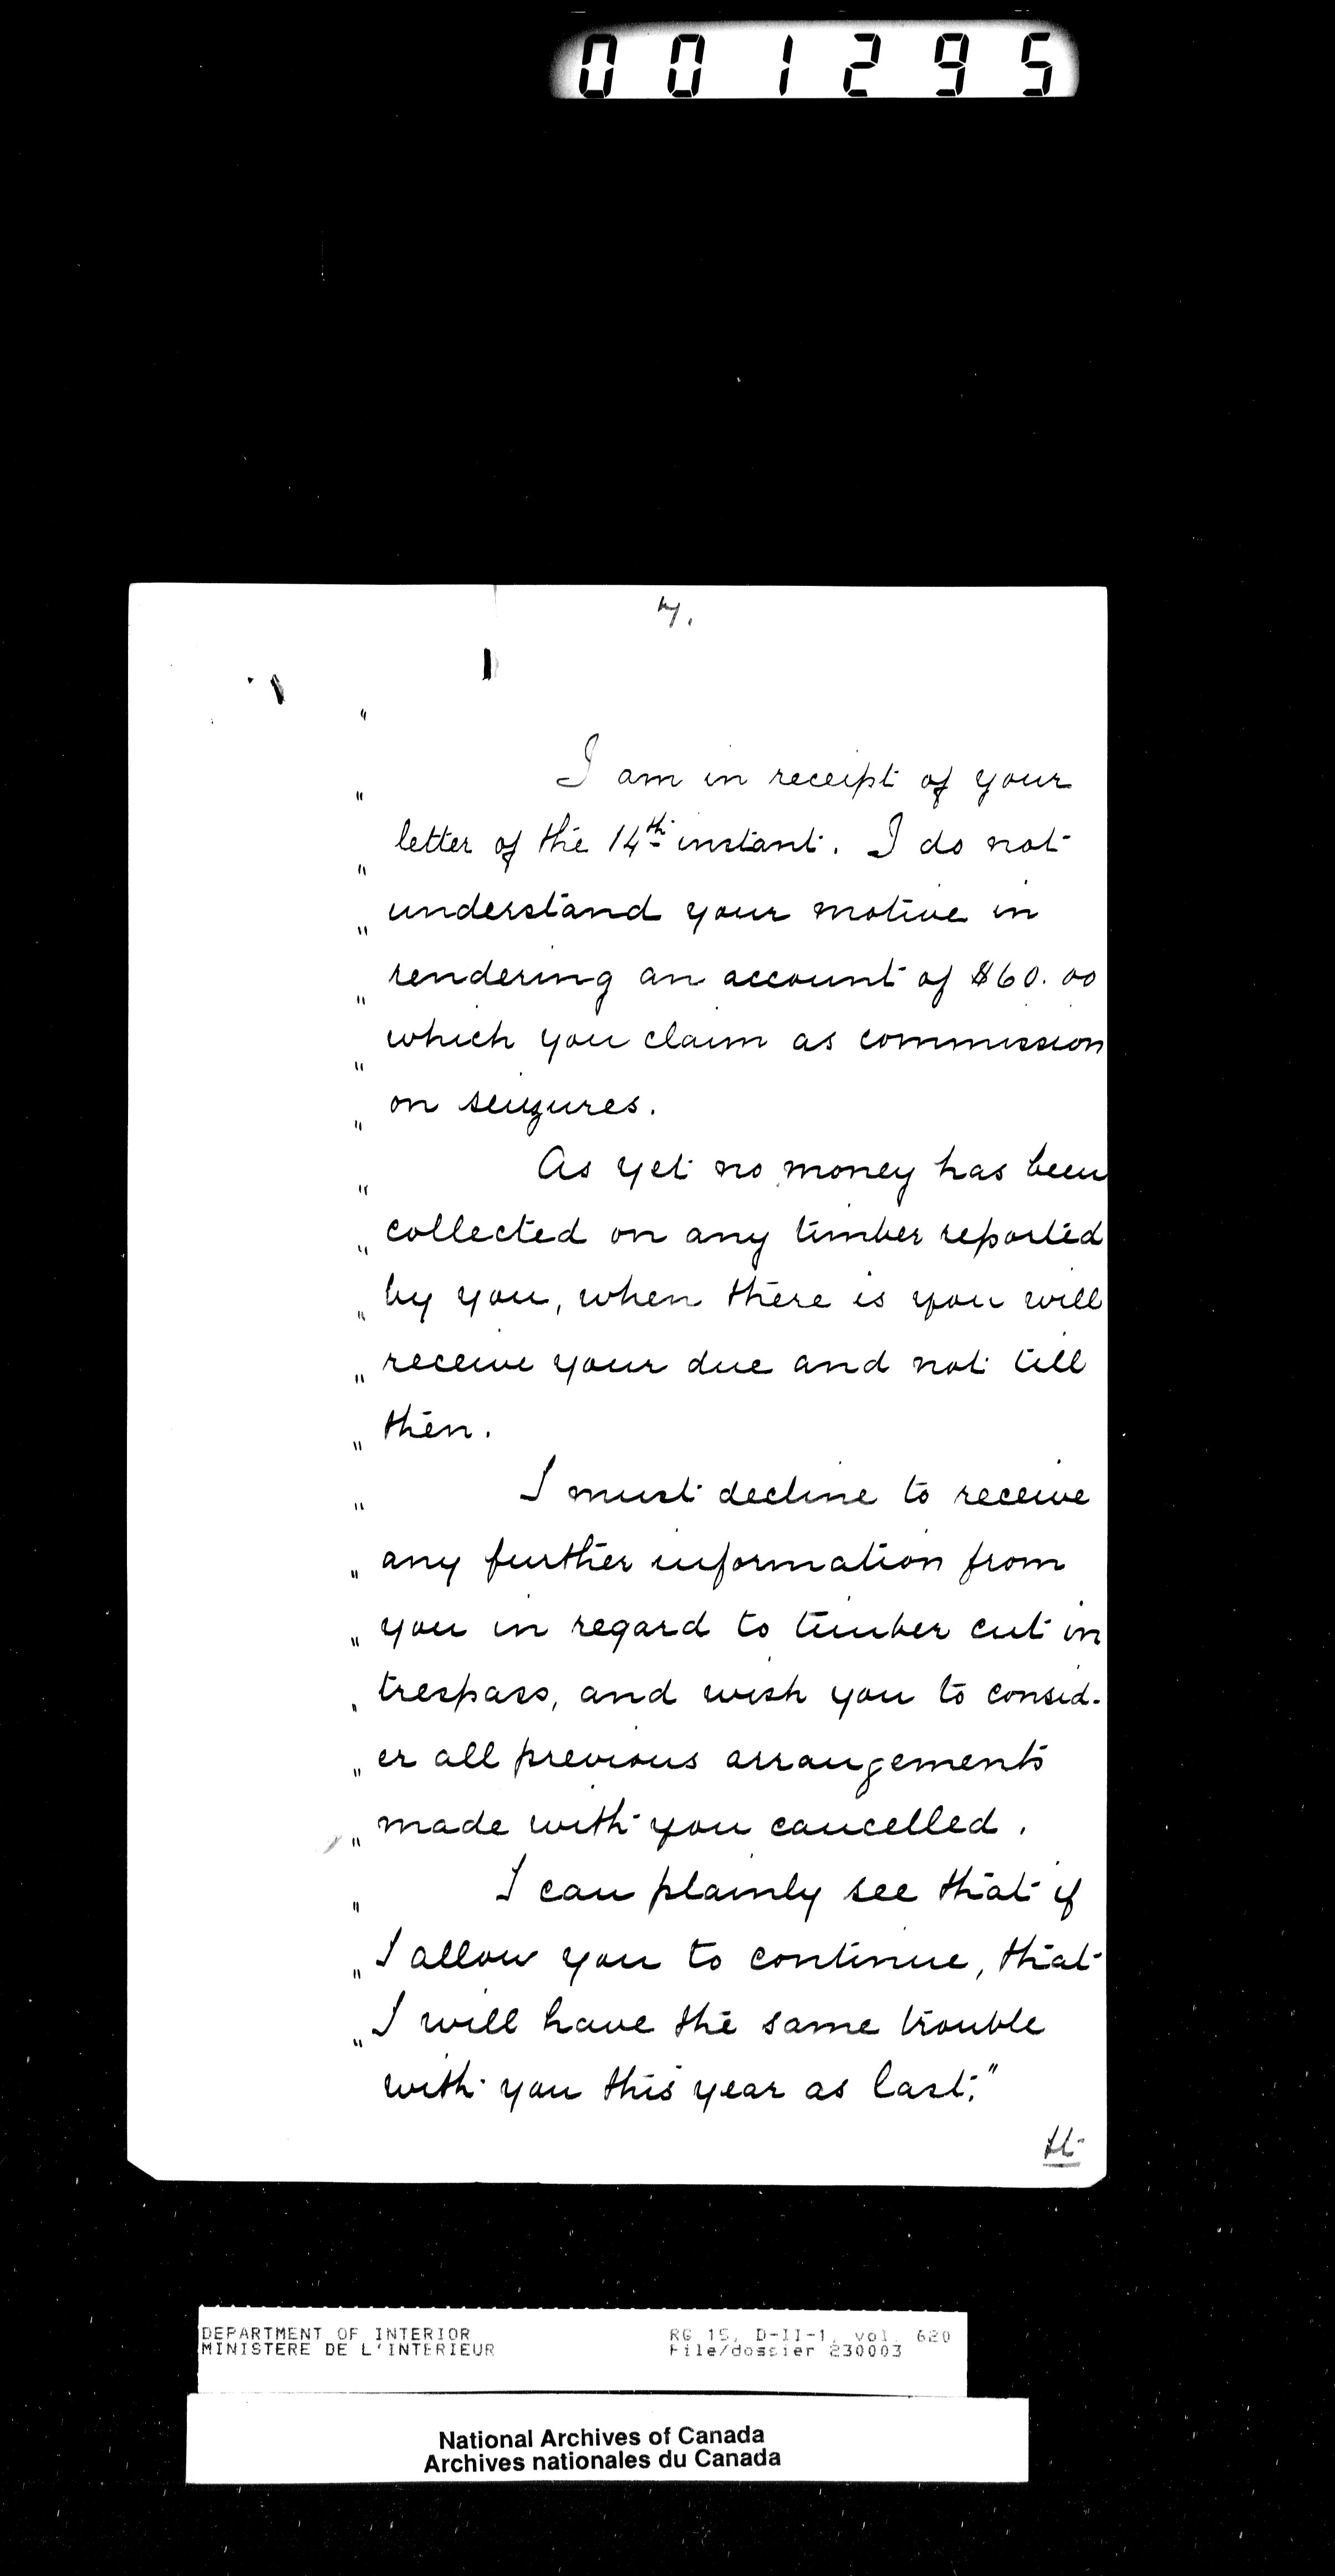 001295
7.
"
" I am in receipt of your
" letter of the 14th instant. I do not
" understand your motive in
" rendering an account of $60.00
" which you claim as commission
" on seizures.
" As yet no money has been
" collected on any timber reported
" by you, when there is you will
" receive your due and not till
" then.
" I must decline to receive
" any further information from
" you in regard to timber cut in
" trespass, and wish you to consid-
" er all previous arrangements
" made with you cancelled.
" I can plainly see that if
" I allow you to continue, that
" I will have the same trouble
with you this year as last."
DEPARTMENT OF INTERIOR
MINISTERE DE L'INTERIEUR
RG 15, D-II-1, vol. 620
File/dossier 230003
National Archives of Canada
Archives nationales du Canada